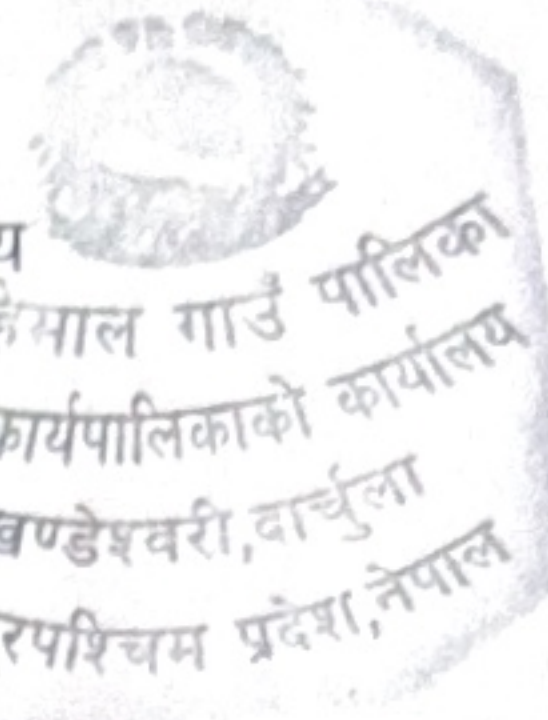 य
हिमाल गाउँ पालिका
कार्यपालिकाको कार्यालय
खण्डेश्वरी,दार्चुला
रपश्चिम प्रदेश,नेपाल